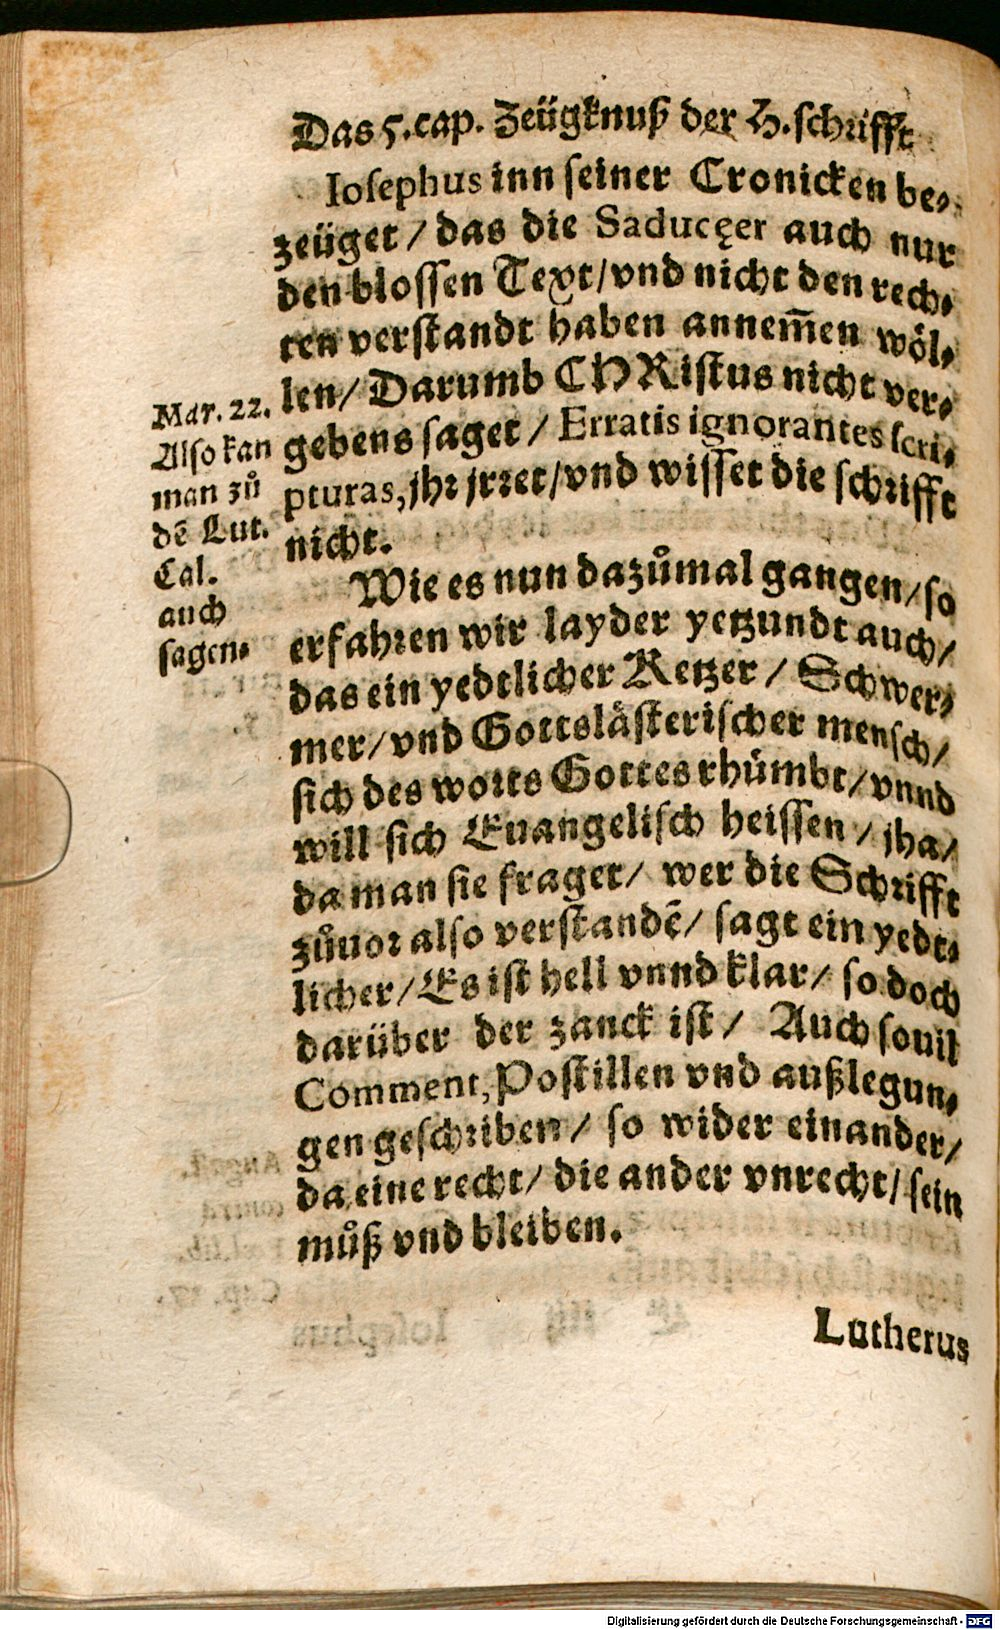 Das 5. cap. Zeügknuß der H. schrifft
Iosephus inn seiner Cronicken be-
zeüget / das die Saducęer auch nur
den blossen Text / vnd nicht den rech-
ten verstandt haben annem̃en wöl-
len / Darumb CHRistus nicht ver-
gebens saget / Erratis ignorantes scri-
pturas, jhr jrret / vnd wisset die schrifft
nicht.
Mat. 22.
Also kan
man zů
dẽ Lut.
Cal.
auch
sagen.
Wie es nun dazůmal gangen / so
erfahren wir layder yetzundt auch /
das ein yedtlicher Ketzer / Schwer-
mer / vnd Gottslästerischer mensch /
sich des worts Gottes rhümbt / vnnd
will sich Euangelisch heissen / jha /
da man sie fraget / wer die Schrifft
zůuor also verstandẽ / sagt ein yedt-
licher / Es ist hell vnnd klar / so doch
darüber der zanck ist / Auch souil
Comment, Postillen vnd außlegun-
gen geschriben / so wider einander /
da eine recht / die ander vnrecht / sein
můß vnd bleiben.
Lutherus
Digitalisierung gefördert durch die Deutsche Forschungsgemeinschaft - DFG